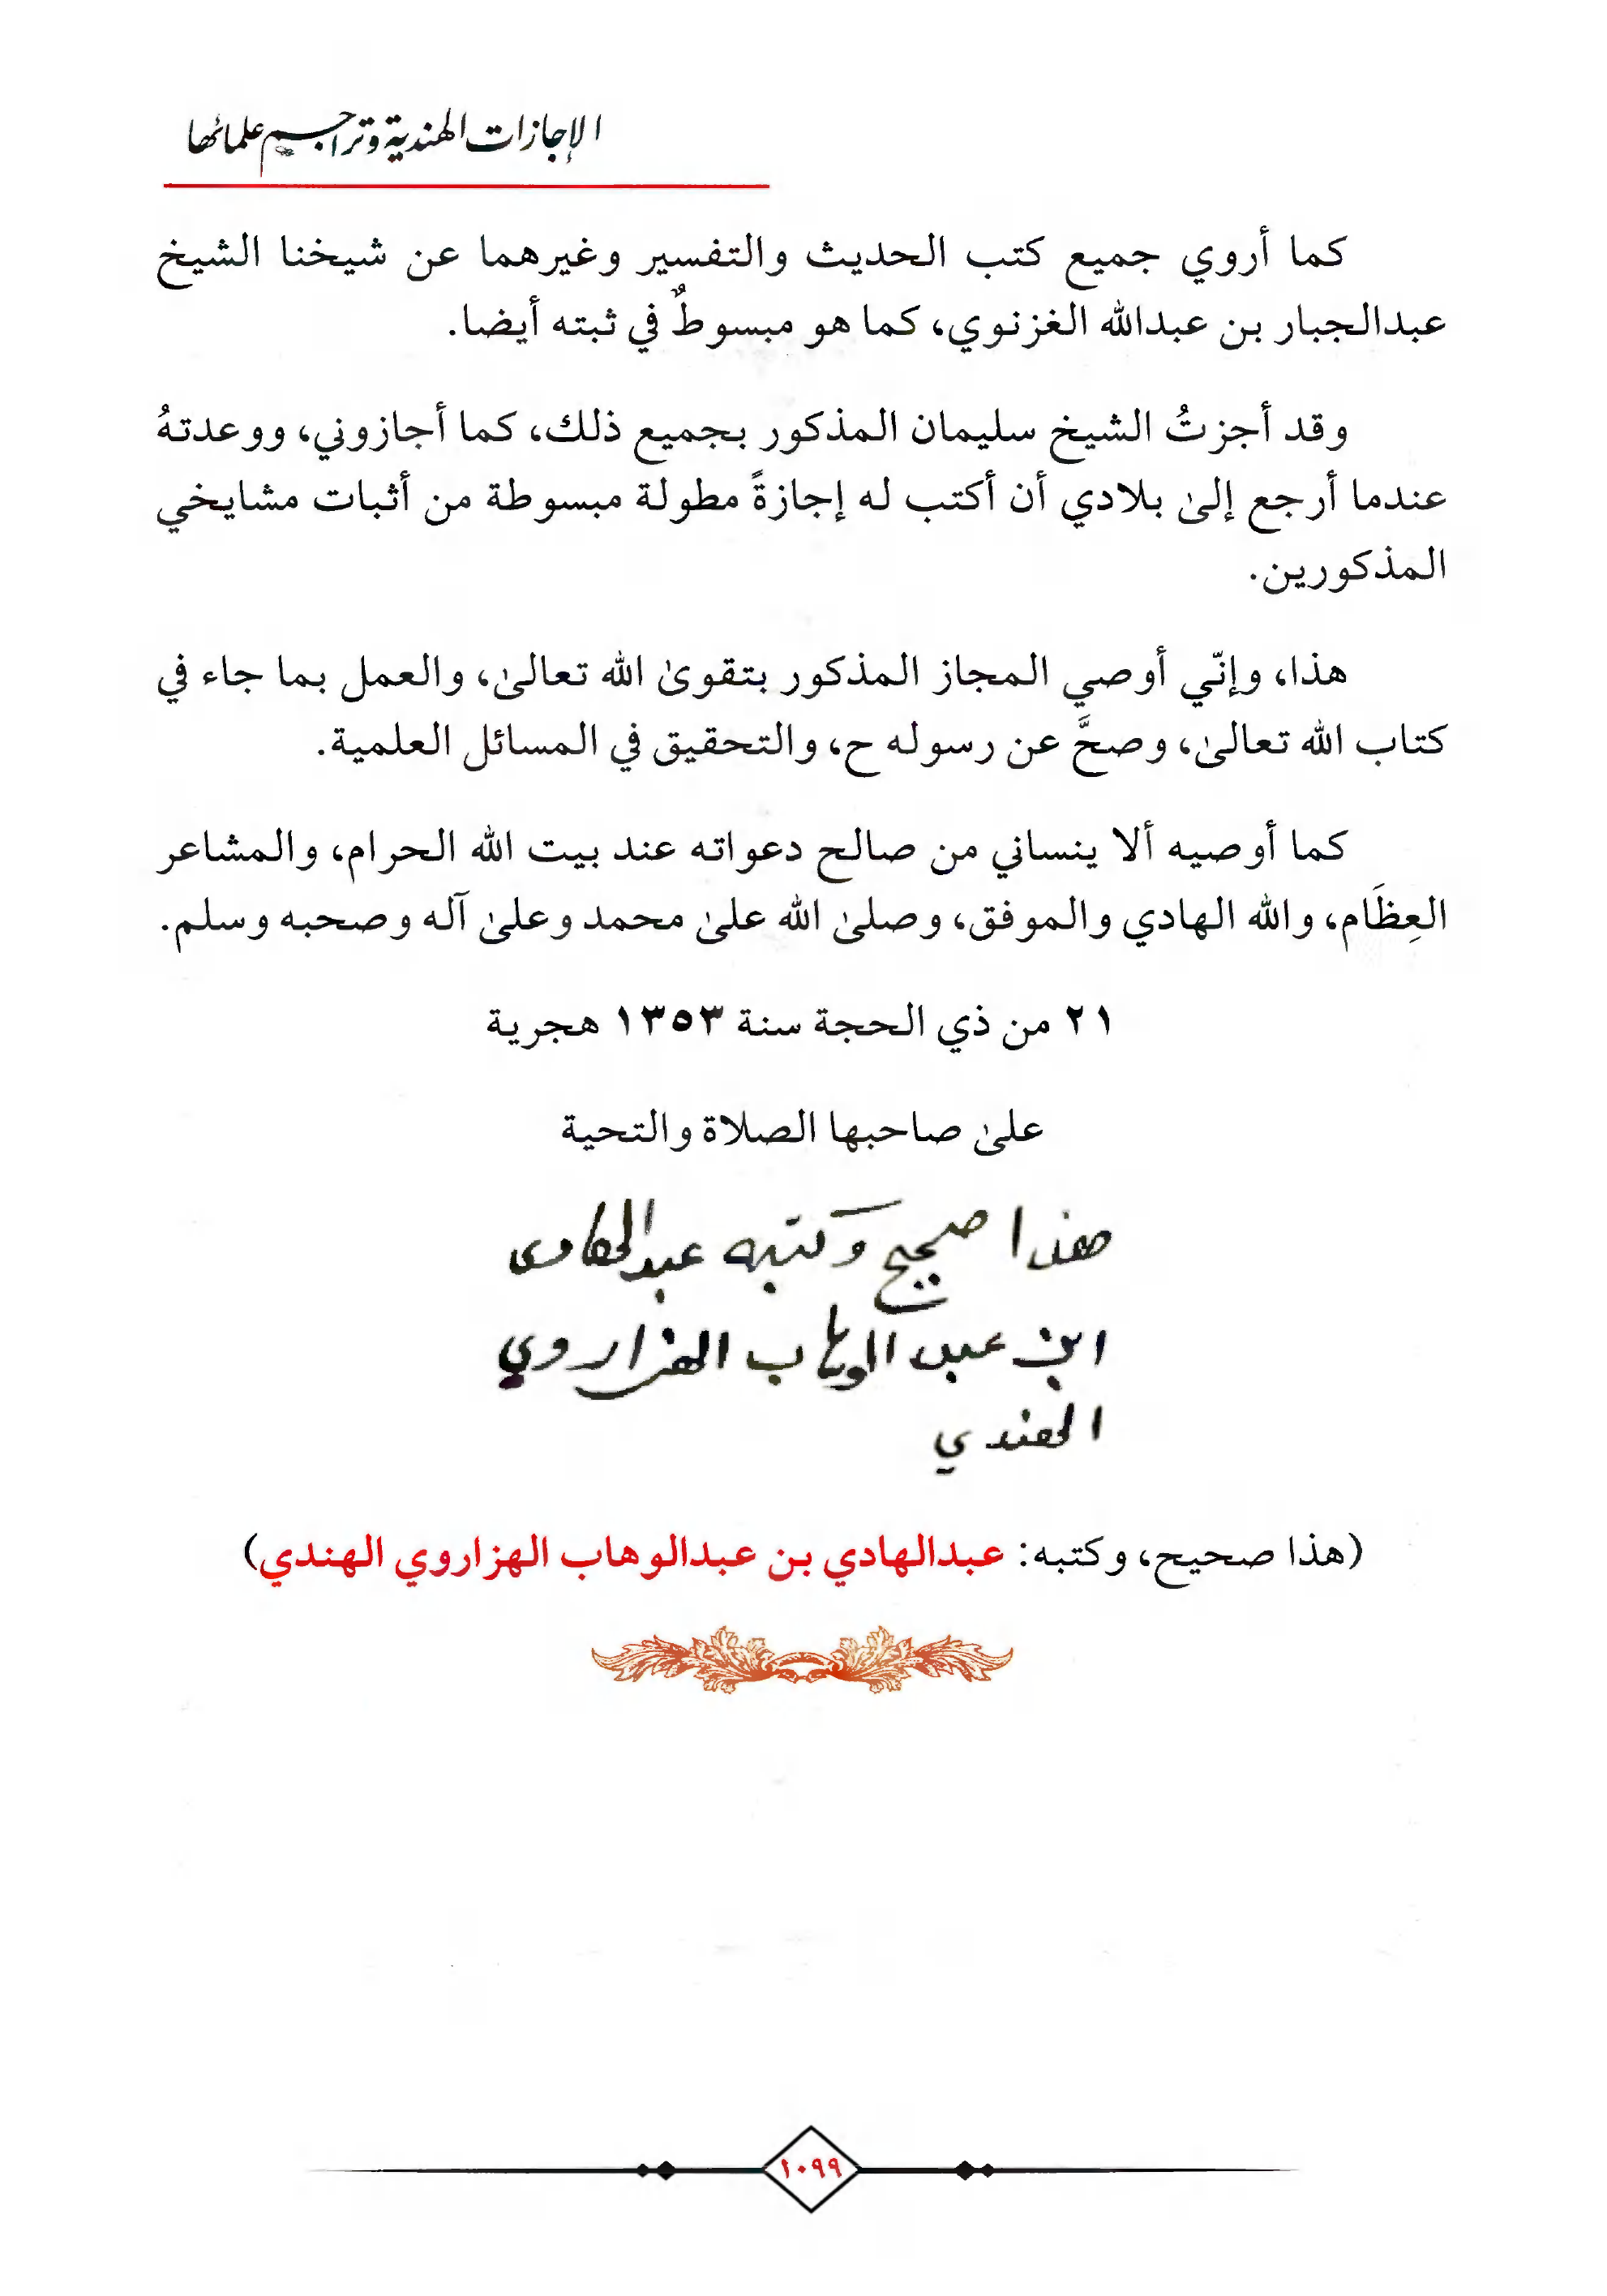 الإجازات الهندية وتراجم علمائها
كما أروي جميع كتب الحديث والتفسير وغيرهما عن شيخنا الشيخ
عبدالجبار بن عبدالله الغزنوي، كما هو مبسوطٌ في ثبته أيضا.
وقد أجزتُ الشيخ سليمان المذكور بجميع ذلك، كما أجازوني، ووعدتهُ
عندما أرجع إلىٰ بلادي أن أكتب له إجازةً مطولة مبسوطة من أثبات مشايخي
المذكورين.
هذا، وإنّي أوصي المجاز المذكور بتقوىٰ الله تعالىٰ، والعمل بما جاء في
كتاب الله تعالىٰ، وصحَّ عن رسوله ح، والتحقيق في المسائل العلمية.
كما أوصيه ألا ينساني من صالح دعواته عند بيت الله الحرام، والمشاعر
العِظَام، والله الهادي والموفق، وصلىٰ الله علىٰ محمد وعلىٰ آله وصحبه وسلم.
٢١ من ذي الحجة سنة ١٣٥٣ هجرية
علىٰ صاحبها الصلاة والتحية
هذا صحيح وكتبه عبدالهادى
ابن عبد الوهاب الهزاروي
الهندي
(هذا صحيح، وكتبه: عبدالهادي بن عبدالوهاب الهزاروي الهندي)
١٠٩٩